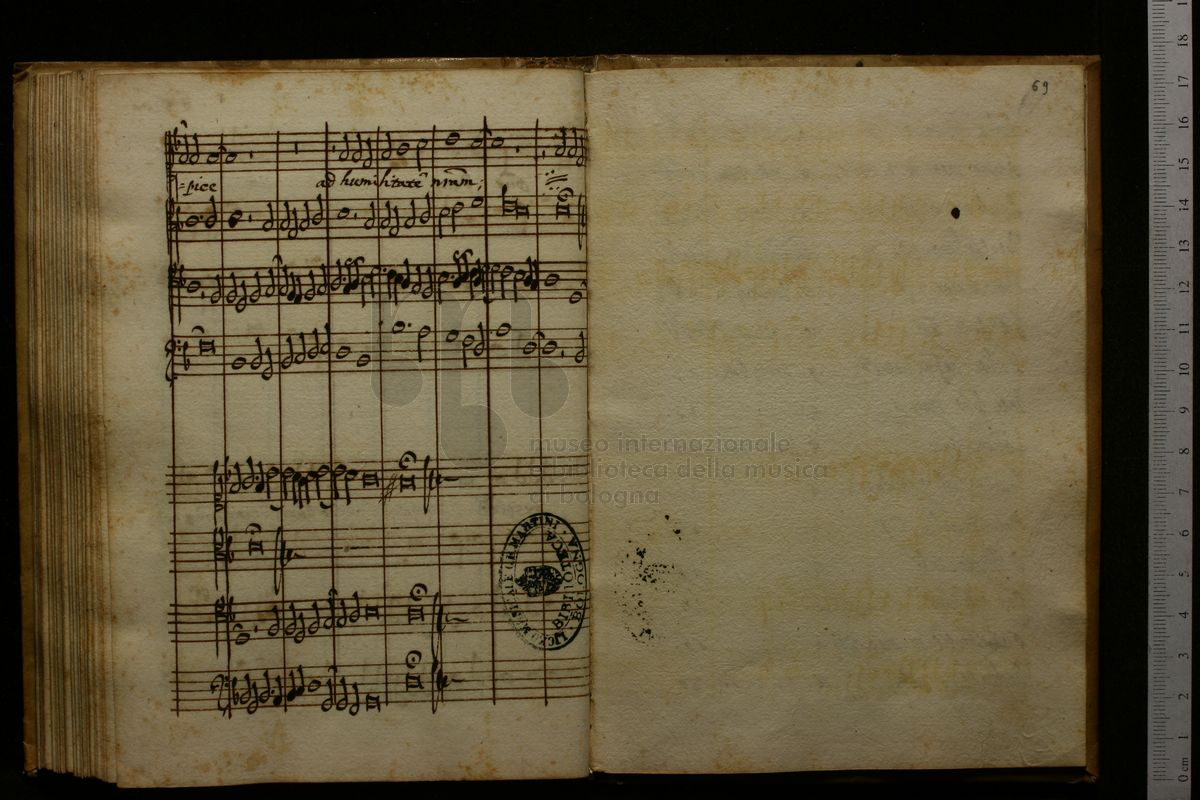 69
-pice ad humilitatē nrām;
museo internazionale
e biblioteca della musica
di bologna
LICEO MUSICALE G.B. MARTINI · BOLOGNA
BIBLIOTECA
0 cm 1 2 3 4 5 6 7 8 9 10 11 12 13 14 15 16 17 18